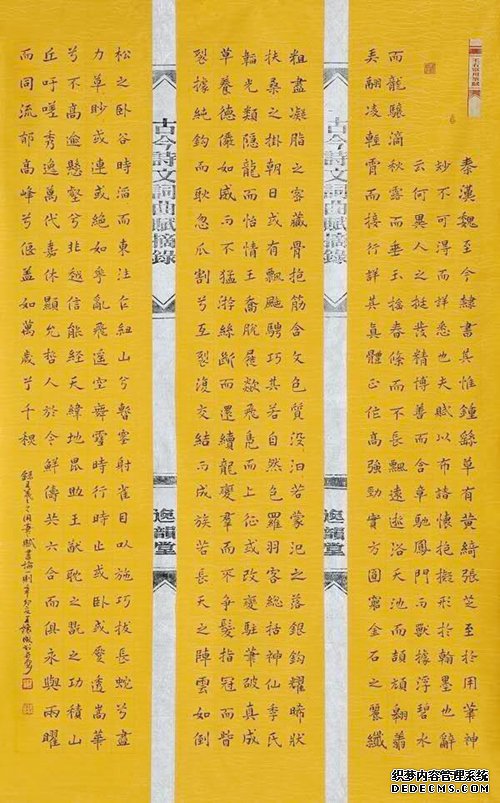 王右軍用筆賦
秦漢魏至今隸書其惟鍾繇草有黃綺張芝至於用筆神
妙不可得而詳悉也夫賦以布諸懷抱擬形於翰墨也辭
云何異人之挺發精博善而含章馳鳳門而獸據浮碧水
而龍驤滴秋露而垂玉搖春條而不長飄遠逝浴天池而頡頏翱翥
美翮凌輕霄而接行詳其真體正作高強勁實方圓窮金石之麗纖
古今詩文詞曲賦摘錄
粗盡凝脂之容藏骨抱筋含文包質沒汩若蒙汜之落銀鉤耀晞狀
扶桑之掛朝日或有飄颻騁巧其若自然包羅羽客總括季氏
韜光類隱龍而怡情王喬脫屣欻飛鳧而上征或改變駐筆破真成
草養德儼如威而不猛游絲斷而還續龍鸞群而不爭髮指冠而皆
裂據純鉤而耿忽瓜割兮互裂復交結而成族若長天之陣雲如倒
古今詩文詞曲賦摘錄
松之臥谷時滔而東注乍紐山兮暫塞射雀目以施巧拔長蛇兮盡
力草眇或連或絕如花亂飛遙空舞雪時行時止或臥或蹙透嵩華
兮不高逾懸壑兮非越信能經天緯地毗助王猷耽之翫之功積山
丘吁嗟秀逸萬代嘉休顯允哲人於今鮮儔共六合而俱永與兩曜
而同流郁高峰兮偃蓋如萬歲兮千秋
织梦内容管理系统
DEDECMS.COM